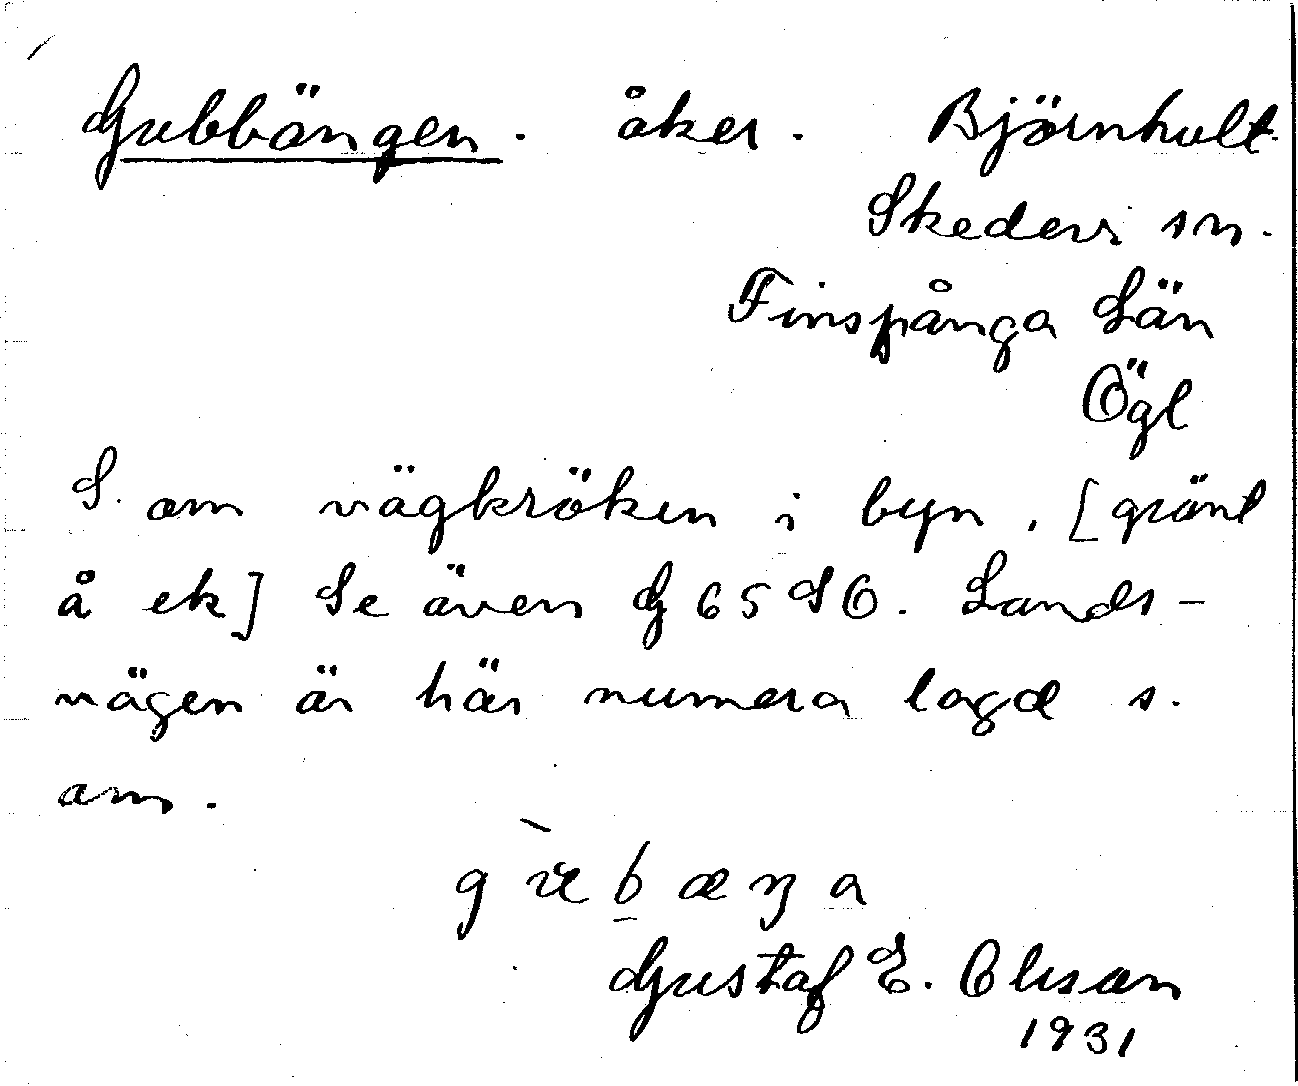 Gubbängen. åker. Björnhult.
Skedevi sn.
Finspånga Län
Ögl
S. om vägkröken i byn. [gränt
å ek] Se även G 65 SO. Lands-
vägen är här numera lagd s.
om.
Gustaf E. Olsson
1931